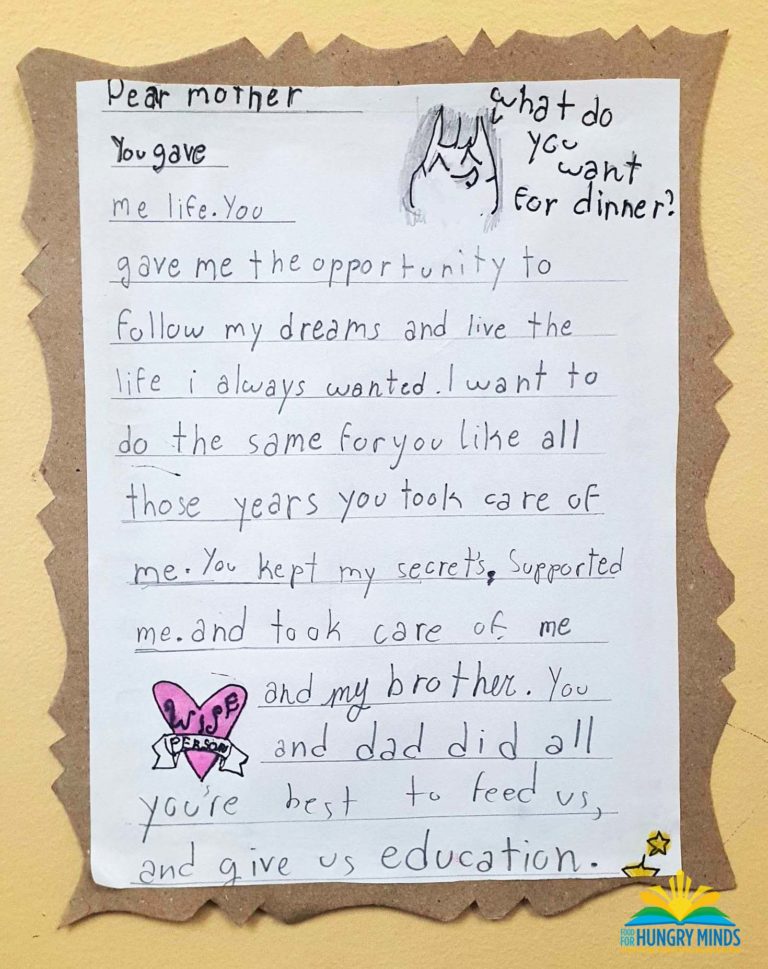 Dear mother
What do
you
want
For dinner?
You gave
me life. You
gave me the opportunity to
follow my dreams and live the
life i always wanted. I want to
do the same for you like all
those years you took care of
me. You kept my secret's, Supported
me. and took care of me
and my brother. You
WISE
PERSON
and dad did all
you're best to feed us,
and give us education.
FOOD
FOR HUNGRY MINDS